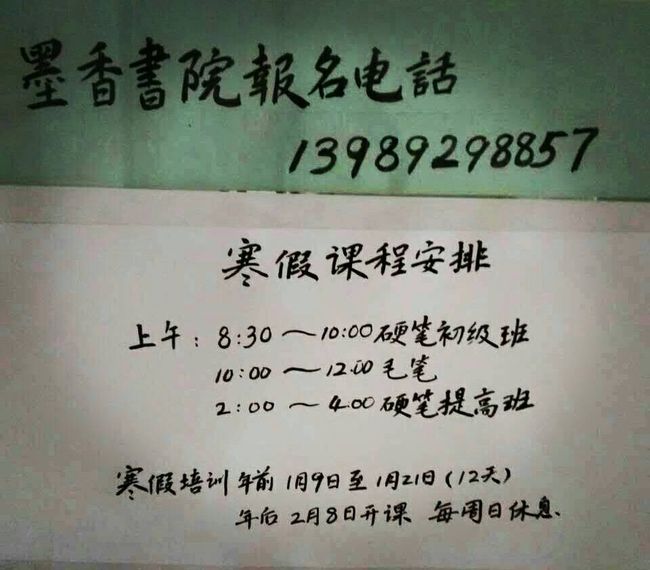 墨香書院報名电話
13989298857
寒假课程安排
上午：8:30～10:00硬笔初级班
10:00～12.00毛笔
2:00～4.00硬笔提高班
寒假培训 年前1月9日至1月21日(12天)
年后2月8日开课 每周日休息.